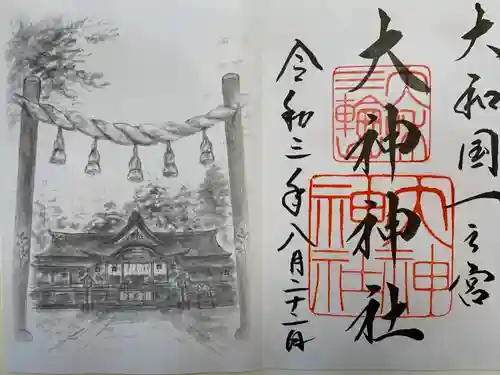 大和国一之宮
大神神社
三輪
大神神社
令和三年八月二十一日